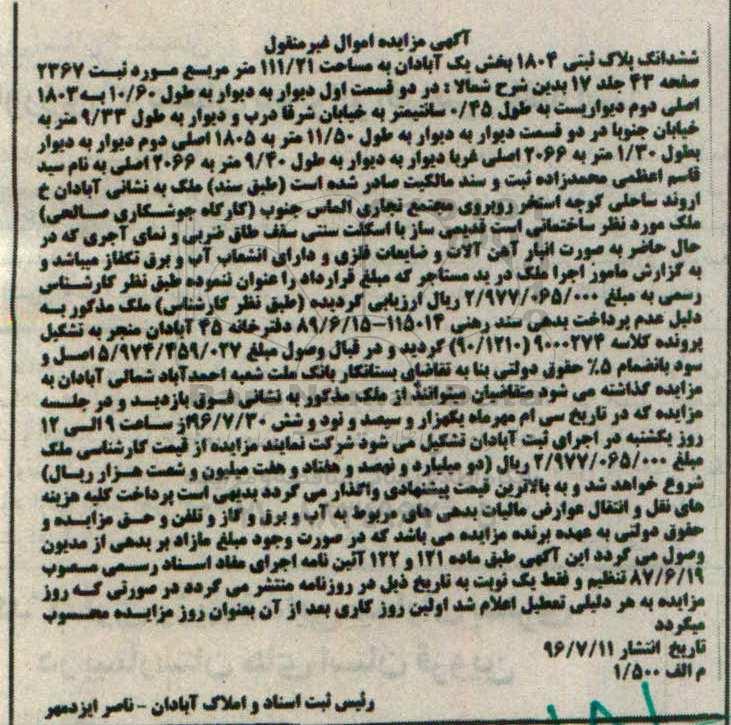 آگهی مزایده اموال غیرمنقول
ششدانگ پلاک ثبتی ۱۸۰۴ بخش یک آبادان به مساحت ۱۱۱/۲۱ متر مربع مورد ثبت ۲۳۶۷
صفحه ۴۳ جلد ۱۷ بدین شرح شمالا : در دو قسمت اول دیوار به دیوار به طول ۱۰/۶۰ به ۱۸۰۳
اصلی دوم دیواریست به طول ۰/۴۵ سانتیمتر به خیابان شرقا درب و دیوار به طول ۹/۳۳ متر به
خیابان جنوبا در دو قسمت دیوار به دیوار به طول ۱۱/۵۰ متر به ۱۸۰۵ اصلی دوم دیوار به دیوار
بطول ۱/۳۰ متر به ۲۰۶۶ اصلی غربا دیوار به دیوار به طول ۹/۴۰ متر به ۲۰۶۶ اصلی به نام سید
قاسم اعظمی محمدزاده ثبت و سند مالکیت صادر شده است (طبق سند) ملک به نشانی آبادان خ
اروند ساحلی کوچه استخر روبروی مجتمع تجاری الماس جنوب (کارگاه جوشکاری صالحی)
ملک مورد نظر ساختمانی است قدیمی ساز با اسکلت سنتی سقف طاق ضربی و نمای آجری که در
حال حاضر به صورت انبار آهن آلات و ضایعات فلزی و دارای انشعاب آب و برق تکفاز میباشد و
به گزارش مامور اجرا ملک در ید مستاجر که مبلغ قرارداد را عنوان ننموده طبق نظر کارشناس
رسمی به مبلغ ۲/۹۷۷/۰۶۵/۰۰۰ ریال ارزیابی گردیده (طبق نظر کارشناس) ملک مذکور به
دلیل عدم پرداخت بدهی سند رهنی ۱۱۵۰۱۴-۸۹/۶/۱۵ دفترخانه ۴۵ آبادان منجر به تشکیل
پرونده کلاسه ۹۰۰۰۲۷۴ (۹۰/۱۲۱۰) گردید و در قبال وصول مبلغ ۵/۹۷۴/۴۵۹/۰۲۷ اصل و
سود بانضمام ۵٪ حقوق دولتی بنا به تقاضای بستانکار بانک ملت شعبه احمدآباد شمالی آبادان به
مزایده گذاشته می شود متقاضیان میتوانند از ملک مذکور به نشانی فوق بازدید و در جلسه
مزایده که در تاریخ سی ام مهرماه یکهزار و سیصد و نود و شش ۹۶/۷/۳۰از ساعت ۹ الی ۱۲
روز یکشنبه در اجرای ثبت آبادان تشکیل می شود شرکت نمایند مزایده از قیمت کارشناسی ملک
مبلغ ۲/۹۷۷/۰۶۵/۰۰۰ ریال (دو میلیارد و نهصد و هفتاد و هفت میلیون و شصت هزار ریال)
شروع خواهد شد و به بالاترین قیمت پیشنهادی واگذار می گردد بدیهی است پرداخت کلیه هزینه
های نقل و انتقال عوارض مالیات بدهی های مربوط به آب و برق و گاز و تلفن و حق مزایده و
حقوق دولتی به عهده برنده مزایده می باشد که در صورت وجود مبلغ مازاد بر بدهی از مدیون
وصول می گردد این آگهی طبق ماده ۱۲۱ و ۱۲۲ آئین نامه اجرای مفاد اسناد رسمی مصوب
۸۷/۶/۱۹ تنظیم و فقط یک نوبت به تاریخ ذیل در روزنامه منتشر می گردد در صورتی که روز
مزایده به هر دلیلی تعطیل اعلام شد اولین روز کاری بعد از آن بعنوان روز مزایده محسوب
میگردد
تاریخ انتشار ۹۶/۷/۱۱
م الف ۱/۵۰۰
رئیس ثبت اسناد و املاک آبادان - ناصر ایزدمهر